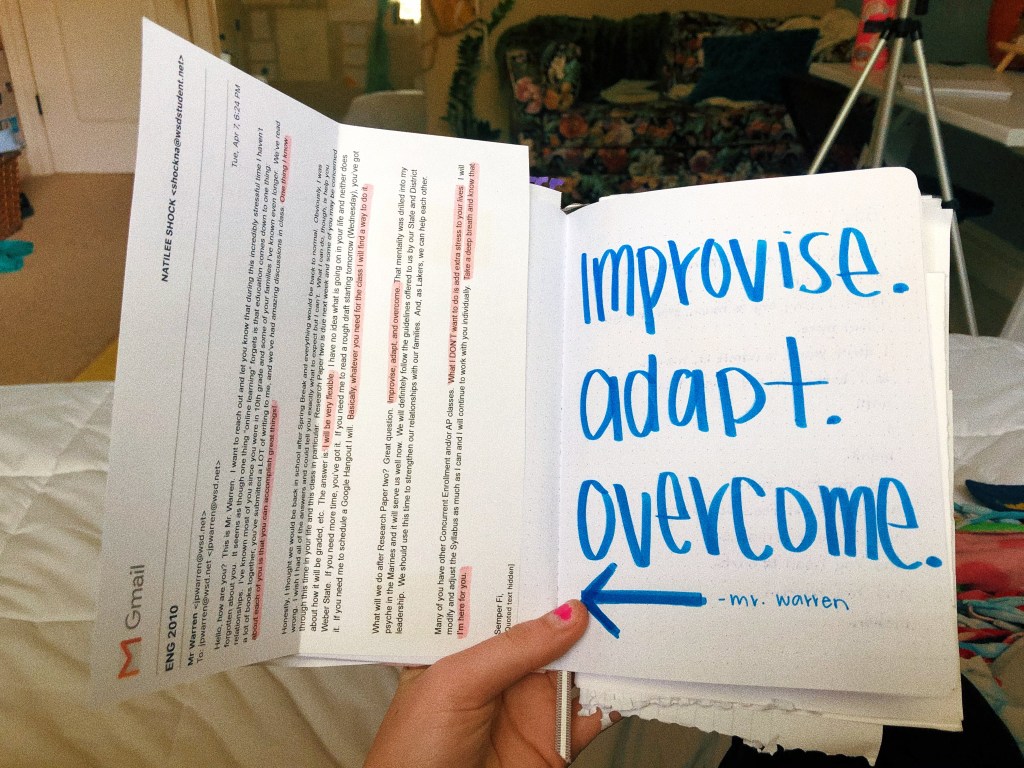 M Gmail
NATILEE SHOCK <shockna@wsdstudent.net>
ENG 2010
Mr Warren <jpwarren@wsd.net>
Tue, Apr 7, 6:24 PM
To: jpwarren@wsd.net <jpwarren@wsd.net>
Hello, how are you? This is Mr. Warren. I want to reach out and let you know that during this incredibly stressful time I haven't
forgotten about you. It seems as though one thing "online learning" forgets is that education comes down to one thing:
relationships. I've known most of you since you were in 10th grade and some of your families I've known even longer. We've read
a lot of books together, you've submitted a LOT of writing to me, and we've had amazing discussions in class. One thing I know
about each of you is that you can accomplish great things!
Honestly, I thought we would be back in school after Spring Break and everything would be back to normal. Obviously, I was
wrong. I wish I had all of the answers and could tell you exactly what to expect but I can't. What I can do, though, is help you
through this time in your life and this class in particular. Research Paper two is due next week and some of you may be concerned
about how it will be graded, etc. The answer is I will be very flexible. I have no idea what is going on in your life and neither does
Weber State. If you need more time, you've got it. If you need me to read a rough draft starting tomorrow (Wednesday), you've got
it. If you need me to schedule a Google Hangout I will. Basically, whatever you need for the class I will find a way to do it.
What will we do after Research Paper two? Great question. Improvise, adapt, and overcome. That mentality was drilled into my
psyche in the Marines and it will serve us well now. We will definitely follow the guidelines offered to us by our State and District
leadership. We should use this time to strengthen our relationships with our families. And, as Lakers, we can help each other.
Many of you have other Concurrent Enrollment and/or AP classes. What I DON'T want to do is add extra stress to your lives. I will
modify and adjust the Syllabus as much as I can and I will continue to work with you individually. Take a deep breath and know that
I'm here for you.
Semper Fi,
[Quoted text hidden]
improvise.
adapt.
overcome.
-mr. warren